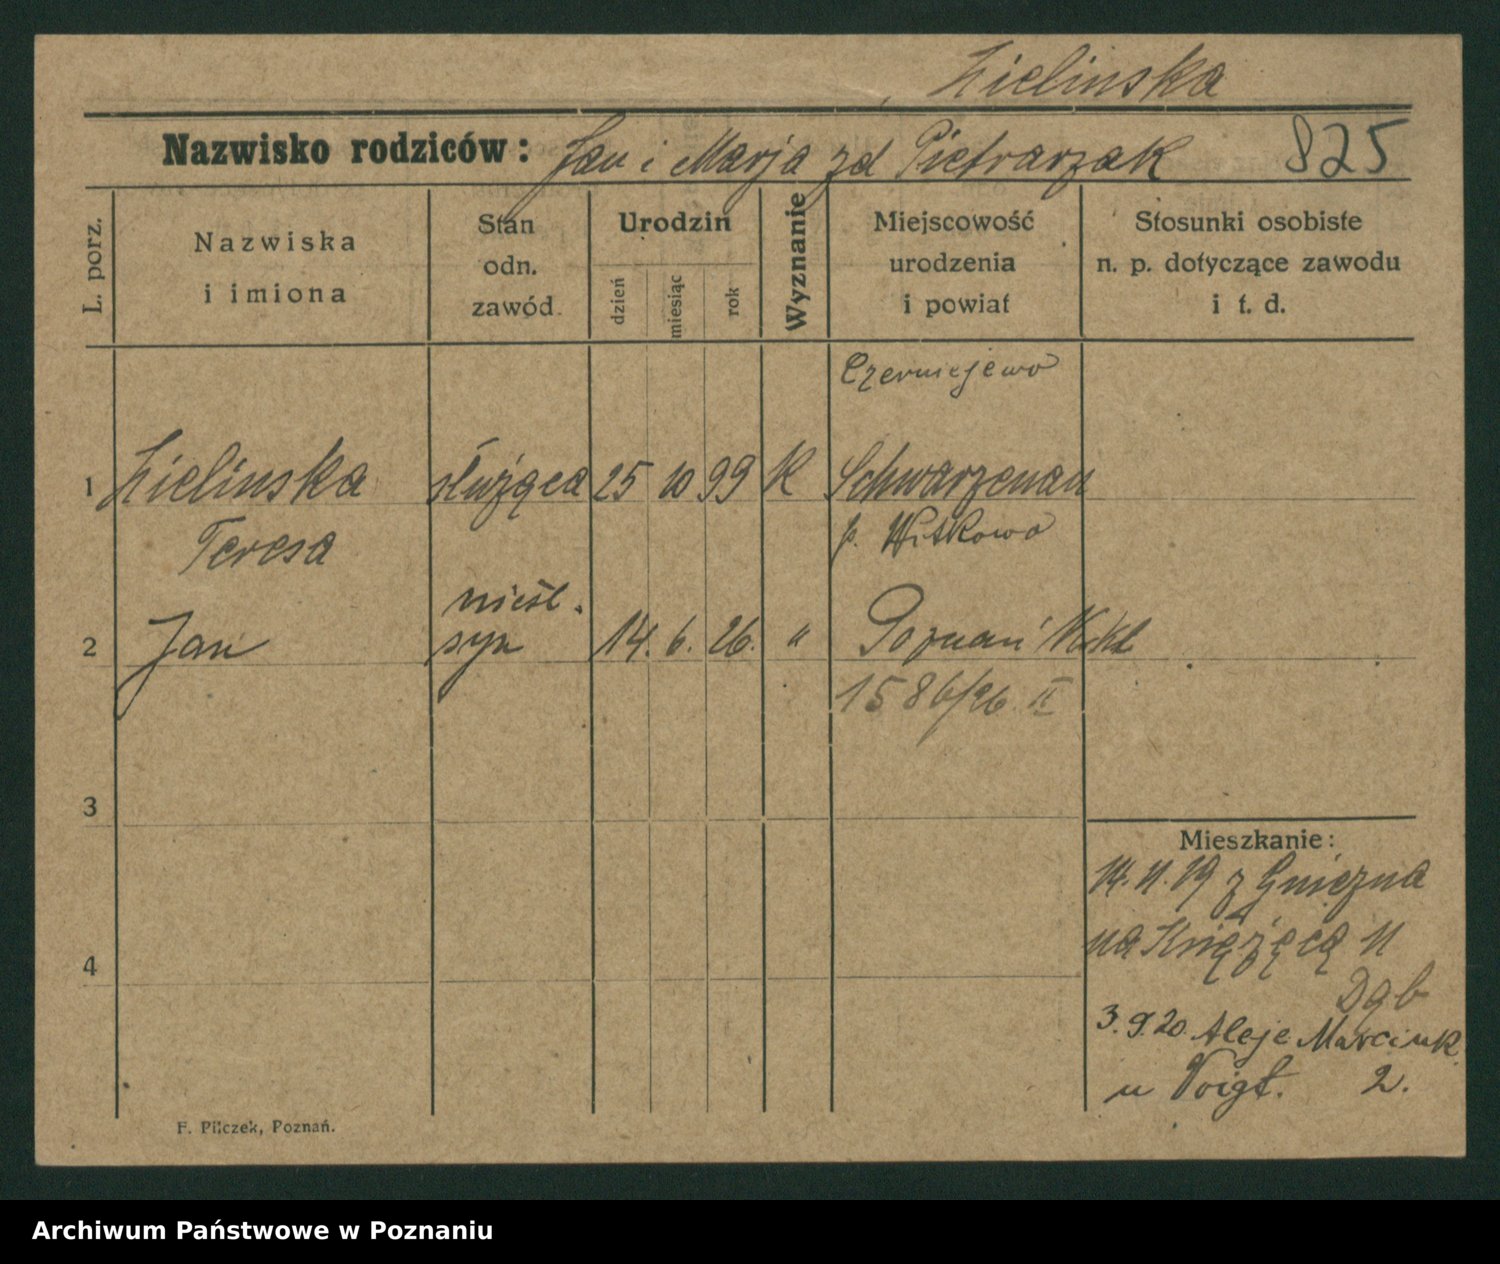 Zielinska
Nazwisko rodziców: Jan i Marja zd Pietrarzak 825
L. porz.
Nazwiska
i imiona
Stan
odn.
zawód.
Urodzin
dzień
miesiąc
rok
Wyznanie
Miejscowość
urodzenia
i powiat
Stosunki osobiste
n. p. dotyczące zawodu
i t. d.
Czerniejewo
1 Zielinska służąca 25 10 99 K Schwarzenau
Teresa p. Witkowo
nieśl.
2 Jan syn 14. 6. 26. " Poznań
1586/26. II
3
Mieszkanie:
14. 11. 19 z Gniezna
na Książęcą 11
4
Dgb
3. 9. 20. Aleje Marcink.
u Voigt. 2.
F. Pilczek, Poznań.
Archiwum Państwowe w Poznaniu